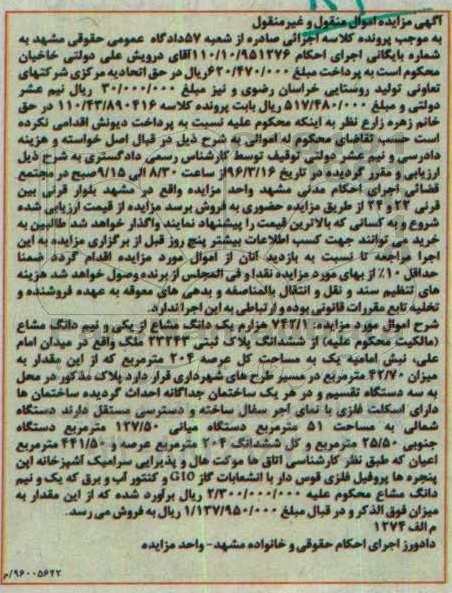 آگهی مزایده اموال منقول و غیر منقول
به موجب پرونده کلاسه اجرائی صادره از شعبه ۵۷دادگاه عمومی حقوقی مشهد به
شماره بایگانی اجرای احکام ۱۱۰/۱۰/۹۵۱۲۷۶آقای درویش علی دولتی خاخیان
محکوم است به پرداخت مبلغ ۶۲۰/۴۷۰/۰۰۰ریال در حق اتحادیه مرکزی شرکتهای
تعاونی تولید روستایی خراسان رضوی و نیز مبلغ ۳۰/۰۰۰/۰۰۰ ریال نیم عشر
دولتی و مبلغ ۵۱۷/۴۸۰/۰۰۰ ریال بابت پرونده کلاسه ۱۱۰/۴۳/۸۹۰۴۱۶ در حق
خانم زهره زارع نظر به اینکه محکوم علیه نسبت به پرداخت دیونش اقدامی نکرده
است حسب تقاضای محکوم له اموالی به شرح ذیل در قبال اصل خواسته و هزینه
دادرسی و نیم عشر دولتی توقیف توسط کارشناس رسمی دادگستری به شرح ذیل
ارزیابی و مقرر گردیده در تاریخ ۹۶/۳/۱۶از ساعت ۸/۳۰ الی ۹/۱۵صبح در مجتمع
قضائی اجرای احکام مدنی مشهد واحد مزایده واقع در مشهد بلوار قرنی بین
قرنی ۲۲ و ۲۴ از طریق مزایده حضوری به فروش برسد مزایده از قیمت ارزیابی شده
شروع و به کسانی که بالاترین قیمت را پیشنهاد نمایند واگذار خواهد شد طالبین به
خرید می توانند جهت کسب اطلاعات بیشتر پنج روز قبل از برگزاری مزایده به این
اجرا مراجعه تا نسبت به بازدید آنان از اموال مورد مزایده اقدام گردد ضمنا
حداقل ۱۰٪ از بهای مورد مزایده نقدا و فی المجلس از برنده وصول خواهد شد هزینه
های تنظیم سند و نقل و انتقال بالمناصفه و بدهی های معوقه به عهده فروشنده و
تخلیه تابع مقررات قانونی بوده و ارتباطی به این اجرا ندارد.
شرح اموال مورد مزایده: ۷۴۲/۱ هزارم یک دانگ مشاع از یکی و نیم دانگ مشاع
(مالکیت محکوم علیه) از ششدانگ پلاک ثبتی ۳۳۳۴۳ ملک واقع در میدان امام
علی، نبش امامیه یک به مساحت کل عرصه ۲۰۴ مترمربع که از این مقدار به
میزان ۴۲/۷۰ مترمربع در مسیر طرح های شهرداری قرار دارد پلاک مذکور در محل
به سه دستگاه تقسیم و در هر یک ساختمان جداگانه احداث گردیده ساختمان ها
دارای اسکلت فلزی با نمای آجر سفال ساخته و دسترسی مستقل دارند دستگاه
شمالی به مساحت ۵۱ مترمربع دستگاه میانی ۱۲۷/۵۰ مترمربع دستگاه
جنوبی ۲۵/۵۰ مترمربع و کل ششدانگ ۲۰۴ مترمربع عرصه و ۴۴۱/۵۰ مترمربع
اعیان که طبق نظر کارشناسی اتاق ها موکت هال و پذیرایی سرامیک آشپزخانه اپن
پنجره ها پروفیل فلزی قوس دار با انشعابات گاز G10 و کنتور آب و برق که یک و نیم
دانگ مشاع محکوم علیه ۲/۳۰۰/۰۰۰/۰۰۰ ریال برآورد شده که از این مقدار به
میزان فوق الذکر و در قبال مبلغ ۱/۱۳۷/۹۵۰/۰۰۰ ریال به فروش می رسد.
م الف ۱۲۷۴
دادورز اجرای احکام حقوقی و خانواده مشهد- واحد مزایده
۹۶۰۰۵۶۲۲/م